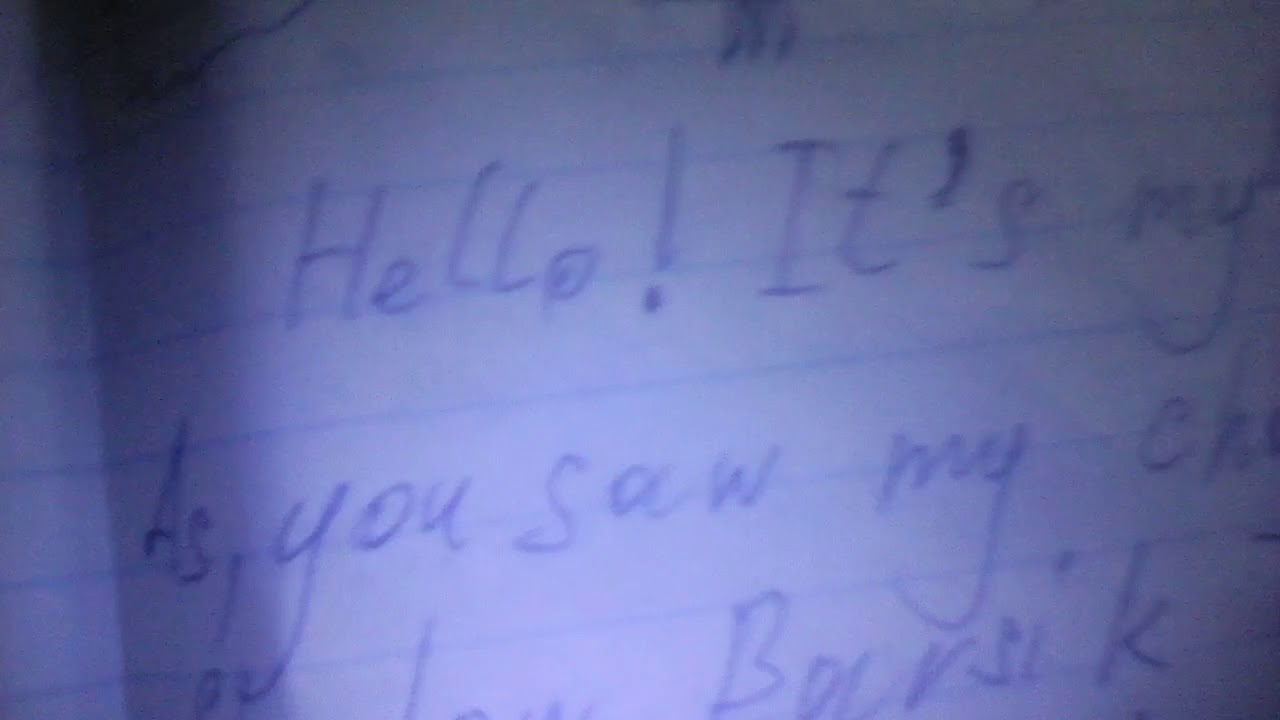 Hello! It's my
As, you saw my
Barsik